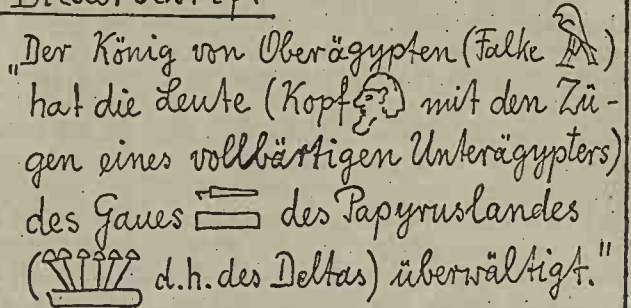 „Der König von Oberägypten (Falke )
hat die Leute (Kopf mit den Zü-
gen eines vollbärtigen Unterägypters)
des Gaues des Papyruslandes
( d.h. des Deltas) überwältigt."